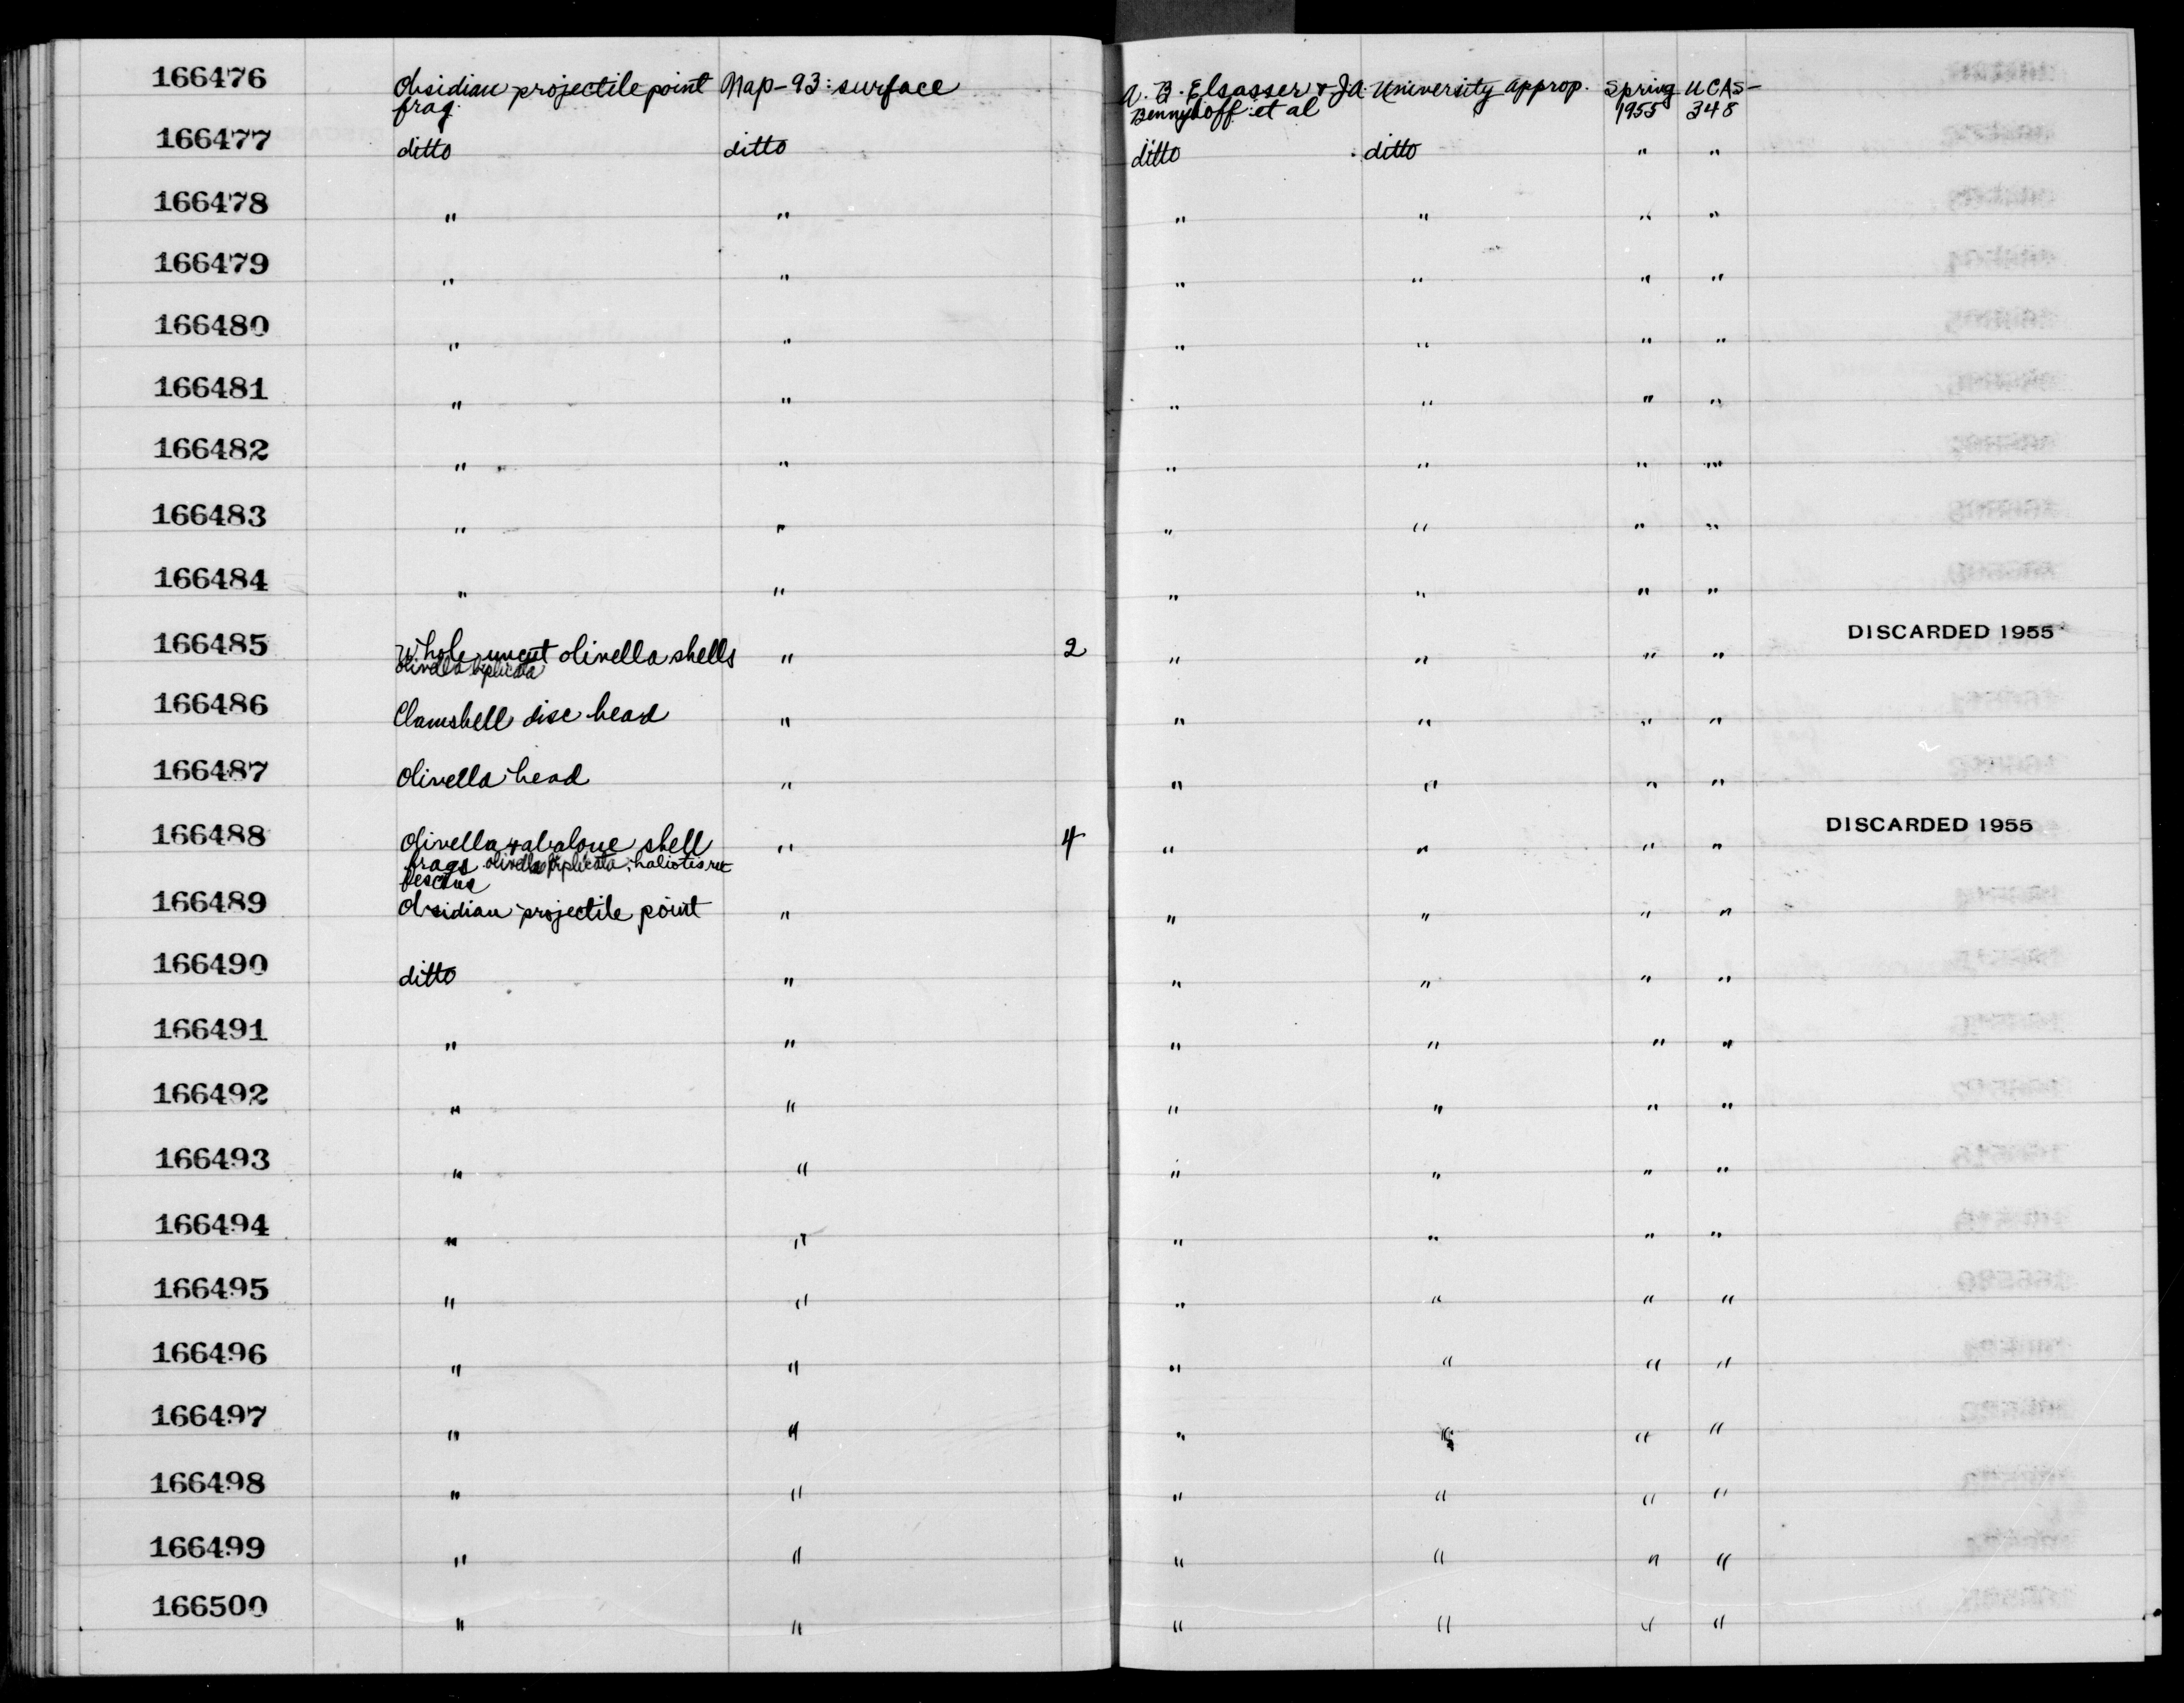 166476 Obsidian projectile point Nap-93: surface A. B. Elsasser & J.A. University approp. Spring UCAS-
frag. Bennyhoff et al 1955 348
166477 ditto ditto ditto ditto " "
166478 " " " " " "
166479 " " " " " "
166480 " " " " " "
166481 " " " " " "
166482 " " " " " "
166483 " " " " " "
166484 " " " " " "
166485 Whole uncut olivella shells " 2 " " " " DISCARDED 1955
olivella biplicata
166486 Clamshell disc bead " " " " "
166487 Olivella bead " " " " "
166488 Olivella & abalone shell " 4 " " " " DISCARDED 1955
frags olivella biplicata; haliotis ruf
fescens
166489 Obsidian projectile point " " " " "
166490 ditto " " " " "
166491 " " " " " "
166492 " " " " " "
166493 " " " " " "
166494 " " " " " "
166495 " " " " " "
166496 " " " " " "
166497 " " " " " "
166498 " " " " " "
166499 " " " " " "
166500 " " " " " "